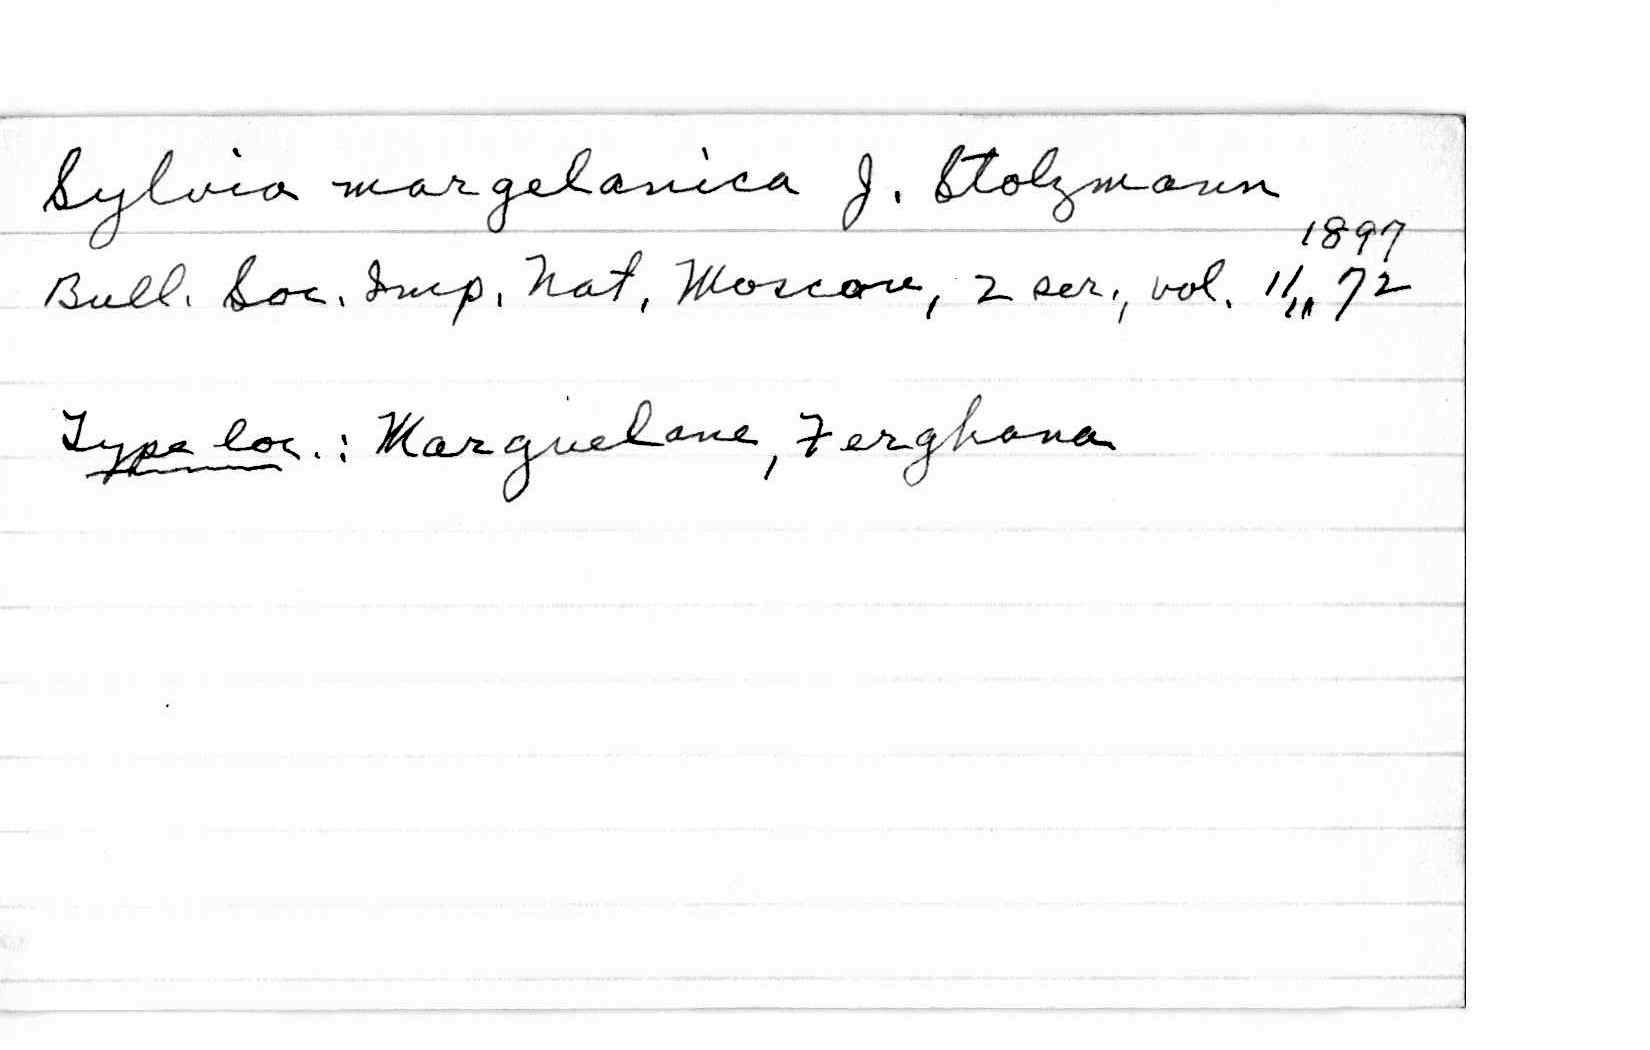 Sylvia margelanica J. Stolzmann
1897
Bull. Soc. Imp. Nat. Moscou, 2 ser., vol. 11, 72
Type loc.: Marguelane, Ferghana